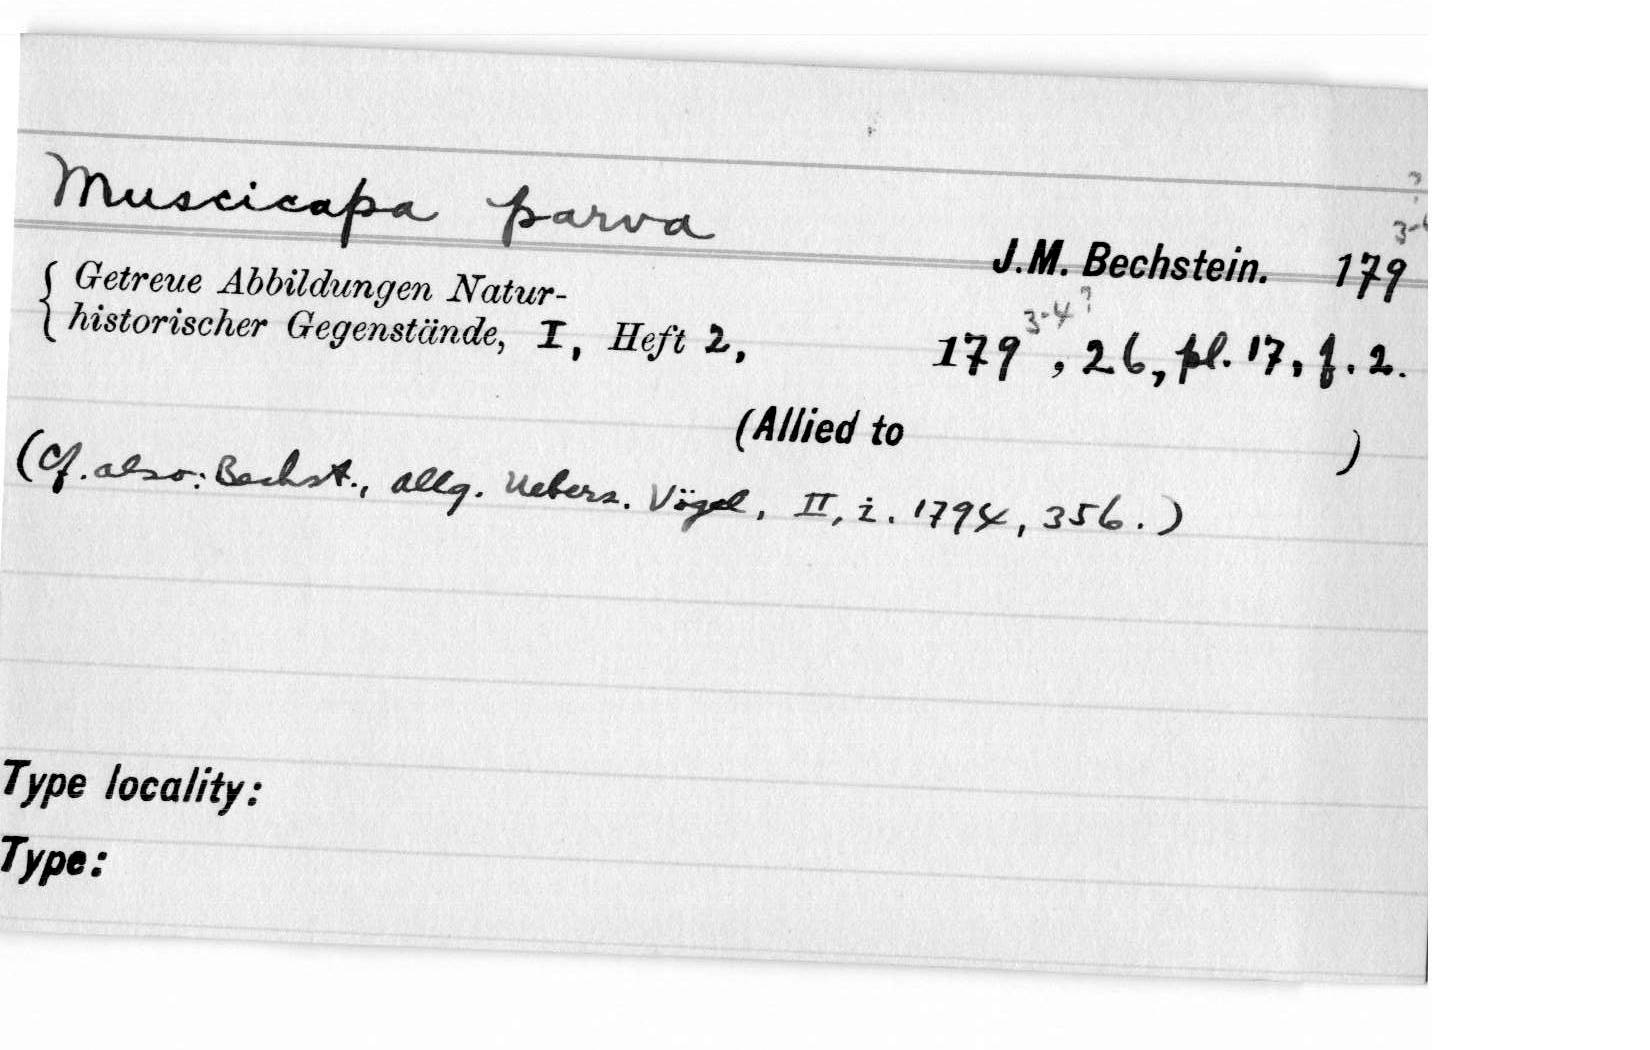 Muscicapa parva
J.M. Bechstein. 179 3-4?
Getreue Abbildungen Natur-
historischer Gegenstände, I, Heft 2, 179 3-4?, 26, pl. 17, f. 2.
(Allied to )
(Cf. also: Bechst., allg. Uebers. Vögel, II, i. 1794, 356.)
Type locality:
Type: